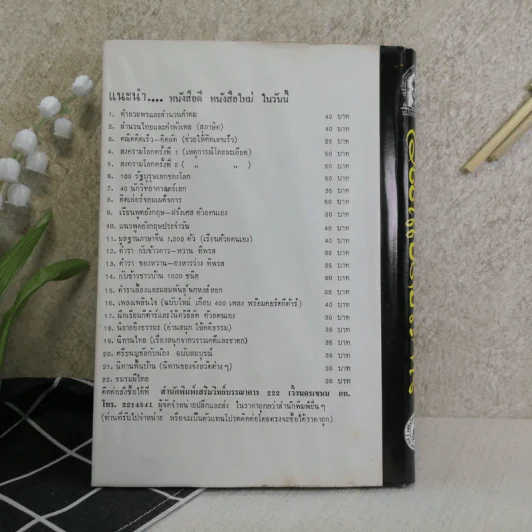 แนะนำ.... หนังสือดี หนังสือใหม่ ในวันนี้
1. คำอวยพรและสำนวนคำคม 40 บาท
2. สำนวนไทยและคำพังเพย (สุภาษิต) 40 บาท
3. คณิตคิดเร็ว-คิดลัด (ช่วยให้คิดเลขเร็ว) 25 บาท
4. สงครามโลกครั้งที่ 1 (เหตุการณ์โดยละเอียด) 50 บาท
5. สงครามโลกครั้งที่ 2 ( " " ) 50 บาท
6. 160 รัฐบุรุษเอกของโลก 50 บาท
7. 40 นักวิทยาศาสตร์เอก 35 บาท
8. ฮิตเล่อร์จอมเผด็จการ 50 บาท
9. เรียนพูดอังกฤษ-ฝรั่งเศส ด้วยตนเอง 35 บาท
10. แนวพูดอังกฤษประจำวัน 40 บาท
11. มูลฐานภาษาจีน 1,000 ตัว (เรียนด้วยตนเอง) 40 บาท
12. ตำรา กับข้าวคาว-หวาน ทิพรส 35 บาท
13. ตำรา ของหวาน-อาหารว่าง ทิพรส 35 บาท
14. กับข้าวชาวบ้าน 1009 ชนิด 60 บาท
15. ตำราเลี้ยงและผสมพันธุ์นกหงส์หยก 35 บาท
16. เพลงเพลินใจ (ฉบับใหม่ เกือบ 400 เพลง พร้อมคอร์ดกีต้าร์) 40 บาท
17. ฝึกเรียนกีต้าร์และโน้ตวิธีดีด ด้วยตนเอง 30 บาท
18. นิยายอิงธรรมะ (อ่านสนุก ให้คติธรรม) 35 บาท
19. นิทานไทย (เรื่องสนุกจากวรรณคดีและชาดก) 35 บาท
20. ศรีธนญชัยกับน้อง ฉบับสมบูรณ์ 35 บาท
21. นิทานพื้นบ้าน (นิทานของจังหวัดต่าง ๆ) 35 บาท
22. ขบวนผีไทย 35 บาท
ติดต่อสั่งซื้อได้ที่ สำนักพิมพ์เสริมวิทย์บรรณาคาร 222 เวิ้งนครเขษม กท.
โทร. 2214541 ผู้จัดจำหน่ายปลีกและส่ง ในราคาถูกกว่าสำนักพิมพ์อื่น ๆ
(ท่านที่รับไปจำหน่าย หรือจะเป็นตัวแทนโปรดติดต่อโดยตรงจะซื้อได้ราคาถูก)